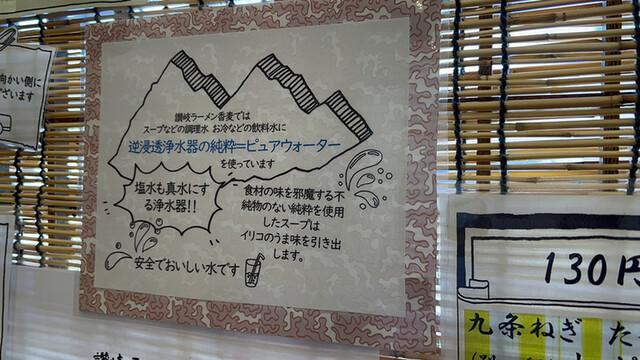 向かい側に
ございます
讃岐ラーメン香麦では
スープなどの調理水 お冷などの飲料水に
逆浸透浄水器の純粋=ピュアウォーター
を使っています
塩水も真水にす
る浄水器!!
食材の味を邪魔する不
純物のない純粋を使用
したスープは
イリコのうま味を引き出
します。
安全でおいしい水です
130円
九条ねぎ た